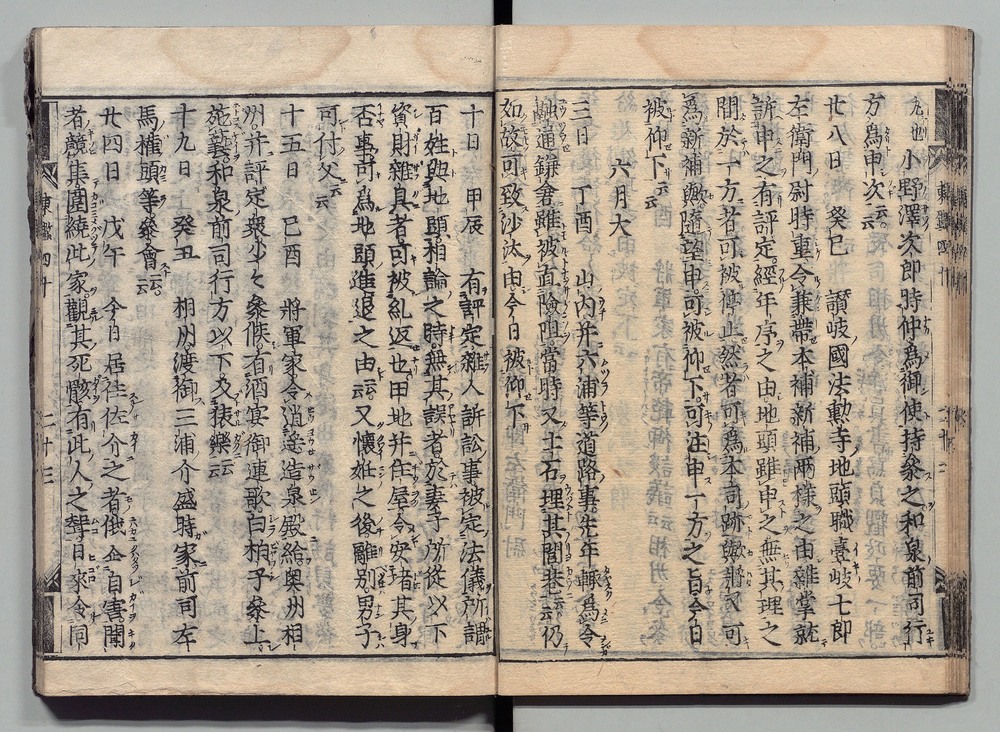 九也小野澤次郎時仲爲御使持參之和泉前司行
方爲申次云云
廿八日　癸巳　讃岐國法勳寺地頭職壹岐七郎
左衛門尉時重令兼帶本補新補兩樣之由雜掌就
訴申之有評定經年序之由地頭雖申之無其理之
間於一方者可被停止然者可爲本司跡歟將又可
爲新補歟隨望申可被仰下可注申一方之旨今日
被仰下云云
六月大
三日　丁酉　山内并六浦等道路事先年輙爲令
融通鎌倉雖被直險阻當時又土石埋其閭巷云云仍
如故可致沙汰由今日被仰下
十日　甲辰　有評定雜人訴訟事被定法儀所謂
百姓與地頭相論之時無其誤者於妻子所從以下
資財雜具者可被糺返也田地并住屋令安堵其身
否事可爲地頭進退之由云云又懷妊之後離別男子
可付父云云
十五日　己酉　將軍家令逍遙造泉殿給奥州相
州并評定衆少々參候有酒宴御連歌白拍子參上
施藝和泉前司行方以下及猿樂云云
十九日　癸丑　相州渡御三浦介盛時家前司左
馬權頭等參會云云
廿四日　戊午　今日居住佐介之者俄企自害聞
者競集圍繞此家觀其死骸有此人之聟日來令同
東鑑四十　二十三